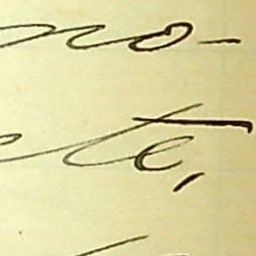 no-
ete,